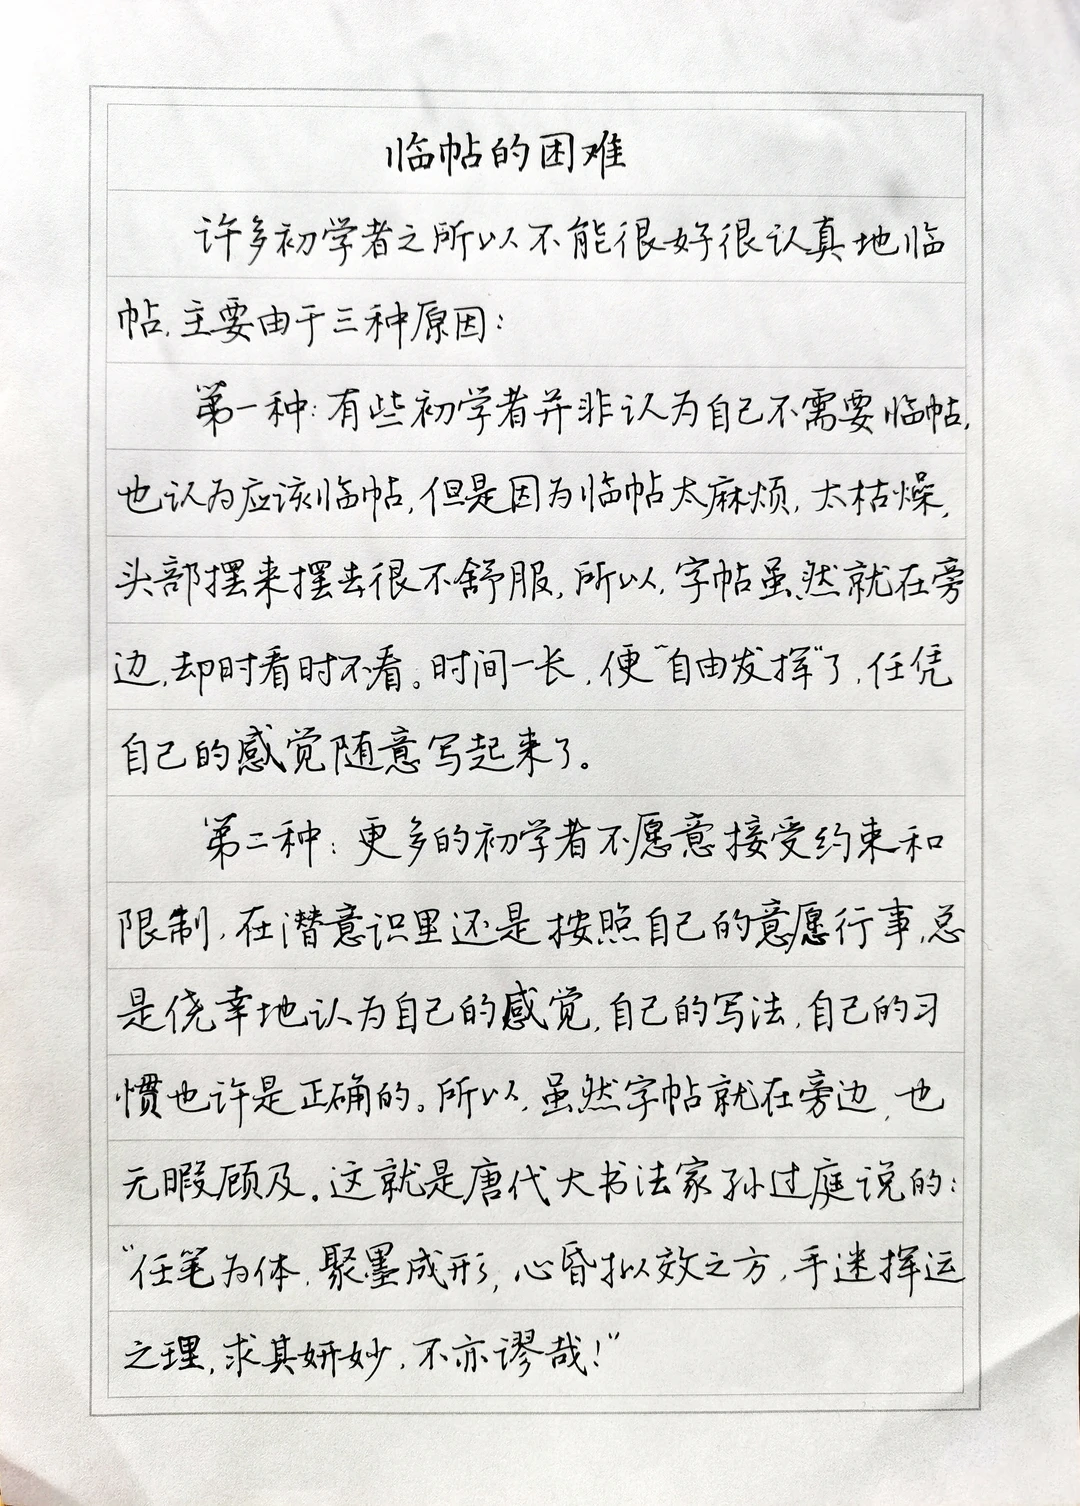 临帖的困难
许多初学者之所以不能很好很认真地临
帖,主要由于三种原因:
第一种:有些初学者并非认为自己不需要临帖,
也认为应该临帖,但是因为临帖太麻烦,太枯燥,
头部摆来摆去很不舒服,所以,字帖虽然就在旁
边,却时看时不看。时间一长,便“自由发挥”了,任凭
自己的感觉随意写起来了。
第二种:更多的初学者不愿意接受约束和
限制,在潜意识里还是按照自己的意愿行事,总
是侥幸地认为自己的感觉,自己的写法,自己的习
惯也许是正确的。所以,虽然字帖就在旁边,也
无暇顾及。这就是唐代大书法家孙过庭说的:
“任笔为体,聚墨成形,心昏拟效之方,手迷挥运
之理,求其妍妙,不亦谬哉!”